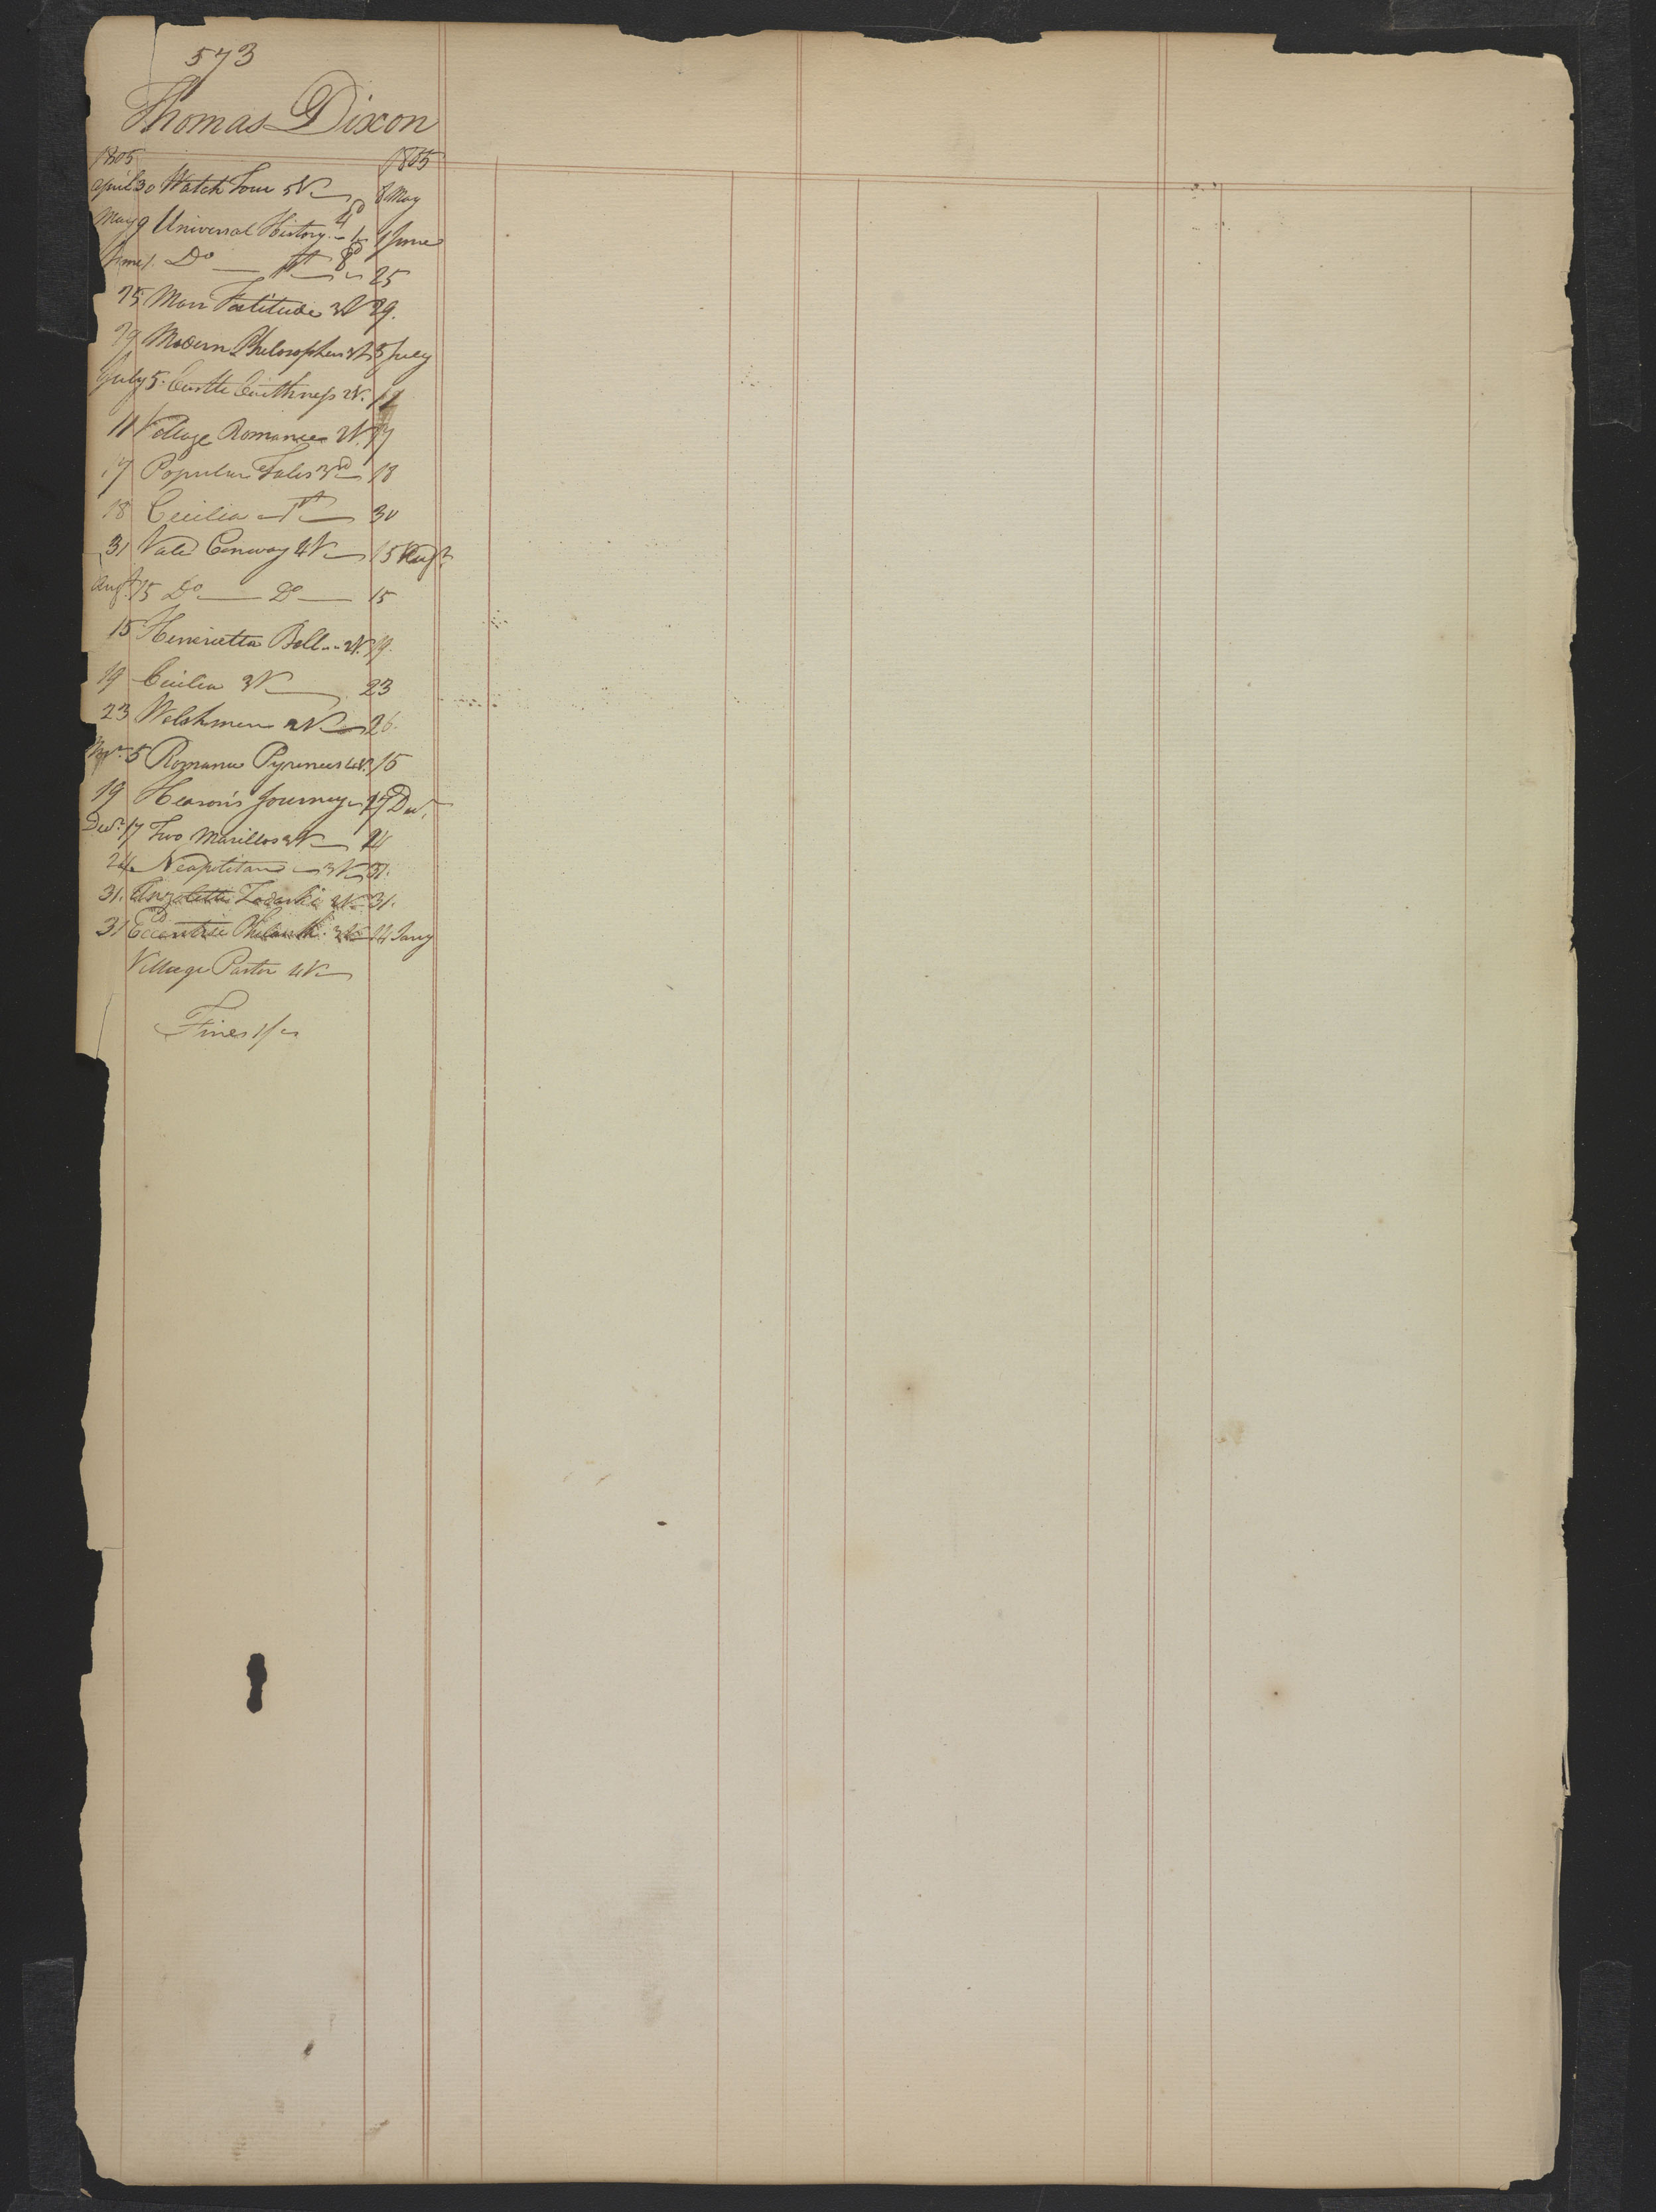 573
Thomas Dixon
1805 1805
April 30 Watch Tour 5V 8 May
May 9 Universal History 1 June
June 1. Do 1st 8 25
25 Man Fortitude 3V 29.
29 Modern Philosophers 3V 5 July
July 5. Castle Caithness 2V. 11
11 Village Romance 2V. 17
17 Popular Tales 3rd 18
18 Cecilia 1st 30
31 Vale Conway 4V 15 Augt
Augt. 15 Do Do 15
15 Henrietta Bell 2V. 19.
19 Cecilia 3V 23
23 Welshmen 2V 26.
5 Romance Pyrenees 4V. 15
19 Hearn's Journey 17 Decr
Decr. 17 Two Marillos 2V 24
24 Neapolitan 3V 31.
31. 2V 31.
31 Eccentric Philanth. 3V 14 Jany
Village Pastor 4V
Fines 1/